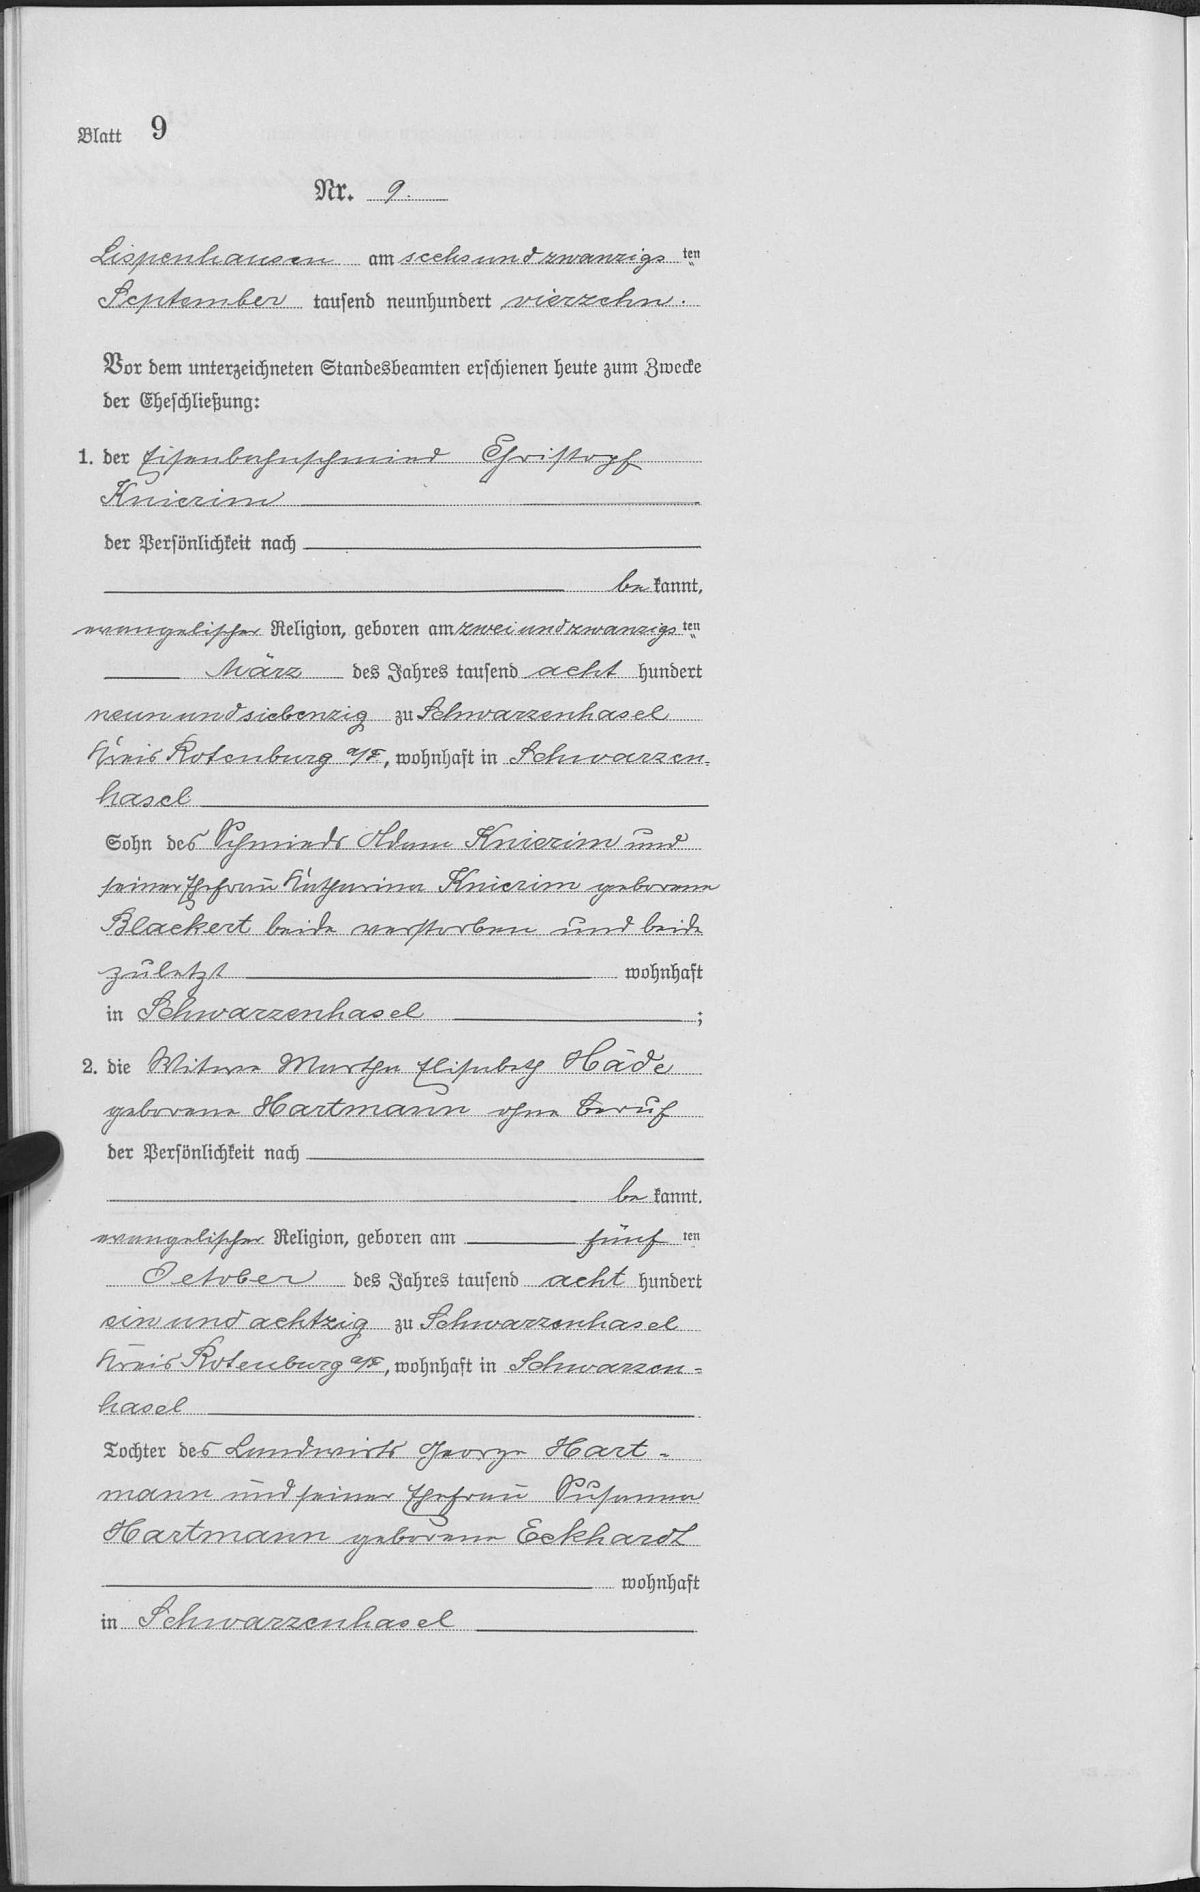 Blatt 9
Nr. 9.
Lispenhausen am sechsundzwanzigs ten
September tausend neunhundert vierzehn.
Vor dem unterzeichneten Standesbeamten erschienen heute zum Zwecke
der Eheschließung:
1. der Eisenbahnschmied Christoph
Knierim
der Persönlichkeit nach
be kannt,
evangelischer Religion, geboren am zweiundzwanzigs ten
März des Jahres tausend acht hundert
neunundsiebenzig zu Schwarzenhasel
Kreis Rotenburg a/F, wohnhaft in Schwarzen-
hasel
Sohn des Schmieds Adam Knierim und
seiner Ehefrau Katharina Knierim geborene
Blackert beide verstorben und beide
zuletzt wohnhaft
in Schwarzenhasel ;
2. die Witwe Martha Elisabeth Häde
geborene Hartmann ohne Beruf
der Persönlichkeit nach
be kannt,
evangelischer Religion, geboren am fünf ten
October des Jahres tausend acht hundert
ein und achtzig zu Schwarzenhasel
Kreis Rotenburg a/F, wohnhaft in Schwarzen=
hasel
Tochter des Landwirts George Hart-
mann und seiner Ehefrau Susanna
Hartmann geborene Eckhardt
wohnhaft
in Schwarzenhasel